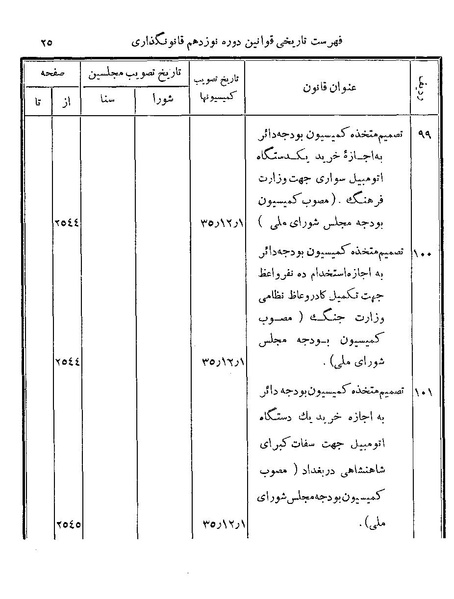 فهرست تاریخی قوانین دوره نوزدهم قانونگذاری ۲۵
ردیف عنوان قانون تاریخ تصویب کمیسیونها تاریخ تصویب مجلسین صفحه
شورا سنا از تا
۹۹ تصمیم متخذه کمیسیون بودجه دائر
به اجازهٔ خرید یکدستگاه
اتومبیل سواری جهت وزارت
فرهنگ . (مصوب کمیسیون
بودجه مجلس شورای ملی ) ۳۵٫۱۲٫۱ ۲۵۴۴
۱۰۰ تصمیم متخذه کمیسیون بودجه دائر
به اجازه استخدام ده نفر واعظ
جهت تکمیل کادر وعاظ نظامی
وزارت جنگ ( مصوب
کمیسیون بودجه مجلس
شورای ملی). ۳۵٫۱۲٫۱ ۲۵۴۴
۱۰۱ تصمیم متخذه کمیسیون بودجه دائر
به اجازه خرید یك دستگاه
اتومبیل جهت سفات کبرای
شاهنشاهی در بغداد ( مصوب
کمیسیون بودجه مجلس شورای
ملی). ۳۵٫۱۲٫۱ ۲۵۴۵